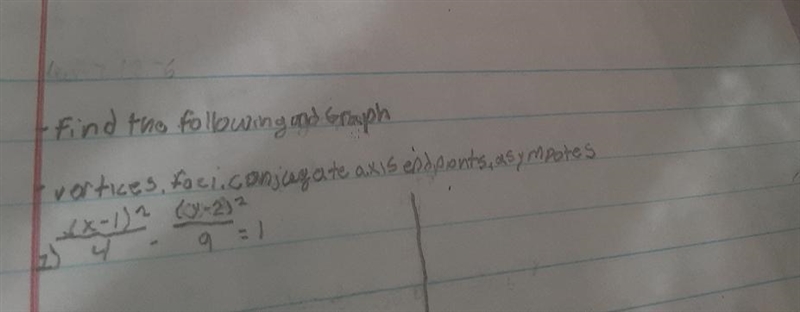 - Find the following and Graph
- vertices, foci, conjugate axis endpoints, asympotes
1) (x-1)²/4 - (y-2)²/9 = 1